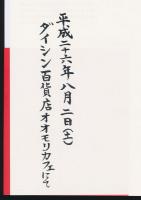 平成二十六年八月二日(土)
ダイシン百貨店オオモリカフェにて